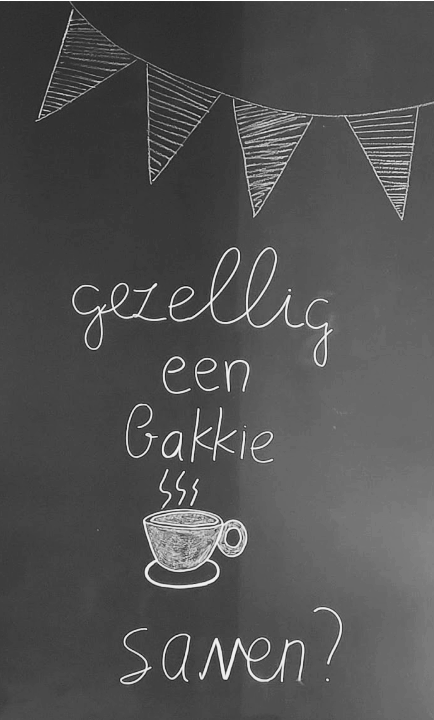 gezellig
een
bakkie
samen?